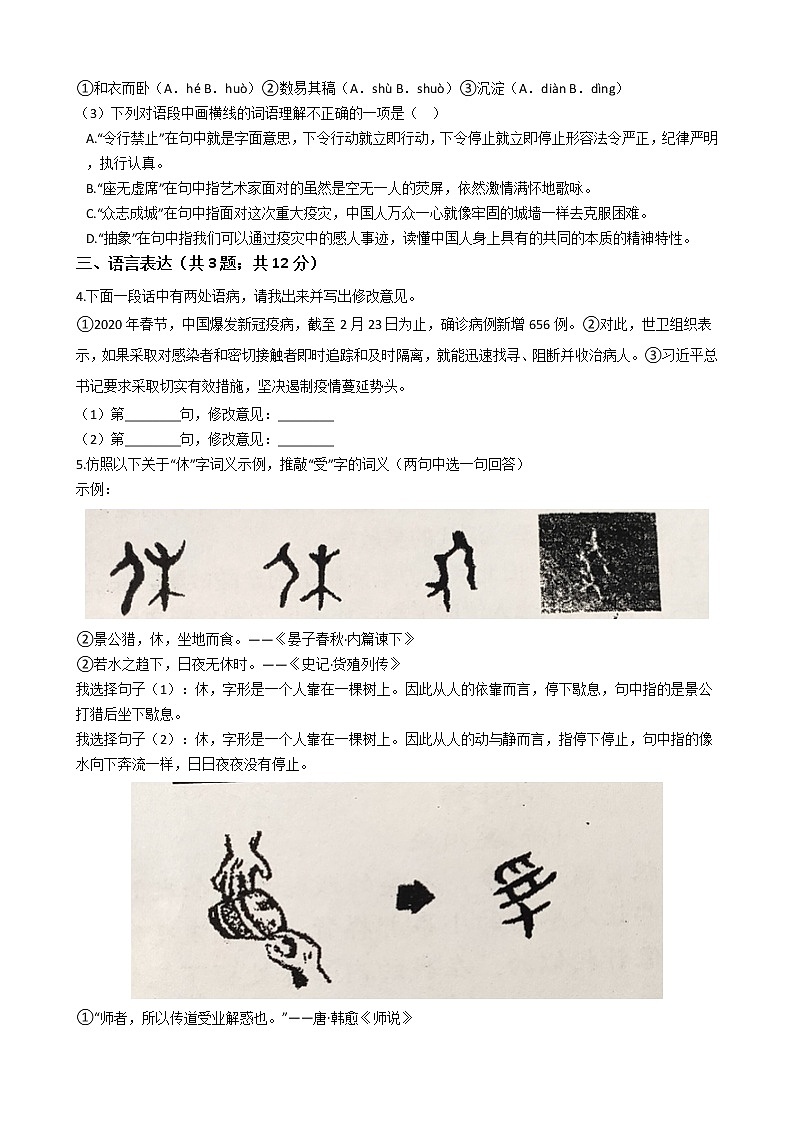 ①和衣而卧（A．hé B．huò）②数易其稿（A．shù B．shuò）③沉淀（A．diàn B．dìng）
（3）下列对语段中画横线的词语理解不正确的一项是（　）
A.“令行禁止”在句中就是字面意思，下令行动就立即行动，下令停止就立即停止形容法令严正，纪律严明
，执行认真。
B.“座无虚席”在句中指艺术家面对的虽然是空无一人的荧屏，依然激情满怀地歌咏。
C.“众志成城”在句中指面对这次重大疫灾，中国人万众一心就像牢固的城墙一样去克服困难。
D.“抽象”在句中指我们可以通过疫灾中的感人事迹，读懂中国人身上具有的共同的本质的精神特性。
三、语言表达（共3题；共12分）
4.下面一段话中有两处语病，请我出来并写出修改意见。
①2020年春节，中国爆发新冠疫病，截至2月23日为止，确诊病例新增656例。②对此，世卫组织表
示，如果采取对感染者和密切接触者即时追踪和及时隔离，就能迅速找寻、阻断并收治病人。③习近平总
书记要求采取切实有效措施，坚决遏制疫情蔓延势头。
（1）第________句，修改意见：________
（2）第________句，修改意见：________
5.仿照以下关于“休”字词义示例，推敲“受”字的词义（两句中选一句回答）
示例：
②景公猎，休，坐地而食。——《晏子春秋·内篇谏下》
②若水之趋下，日夜无休时。——《史记·货殖列传》
我选择句子（1）：休，字形是一个人靠在一棵树上。因此从人的依靠而言，停下歇息，句中指的是景公
打猎后坐下歇息。
我选择句子（2）：休，字形是一个人靠在一棵树上。因此从人的动与静而言，指停下停止，句中指的像
水向下奔流一样，日日夜夜没有停止。
①“师者，所以传道受业解惑也。”——唐·韩愈《师说》